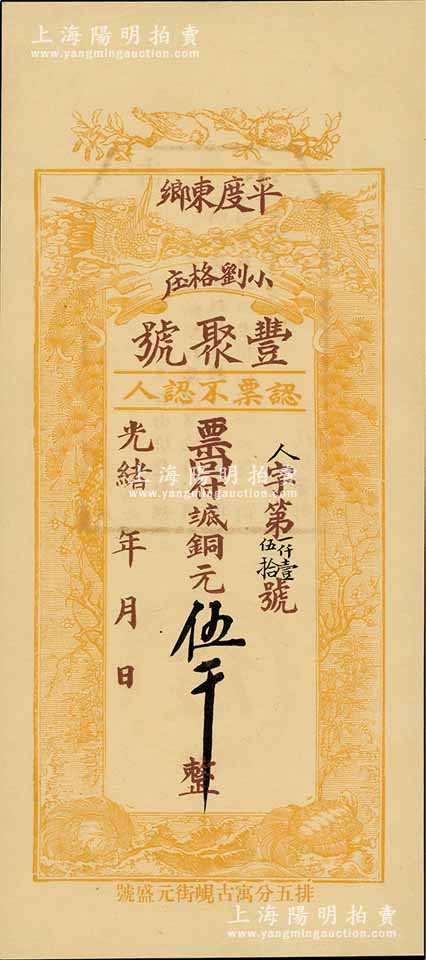 上海陽明拍賣
www.yangmingauction.com
平度東鄉
小劉格庄
豐聚號
認票不認人
人字第一仟壹伍拾號
票存詆銅元伍千整
光緒 年 月 日
上海陽明拍賣
www.yangmingauction.com
排五分寓古峴街元盛號
上海陽明拍賣
www.yangmingauction.com